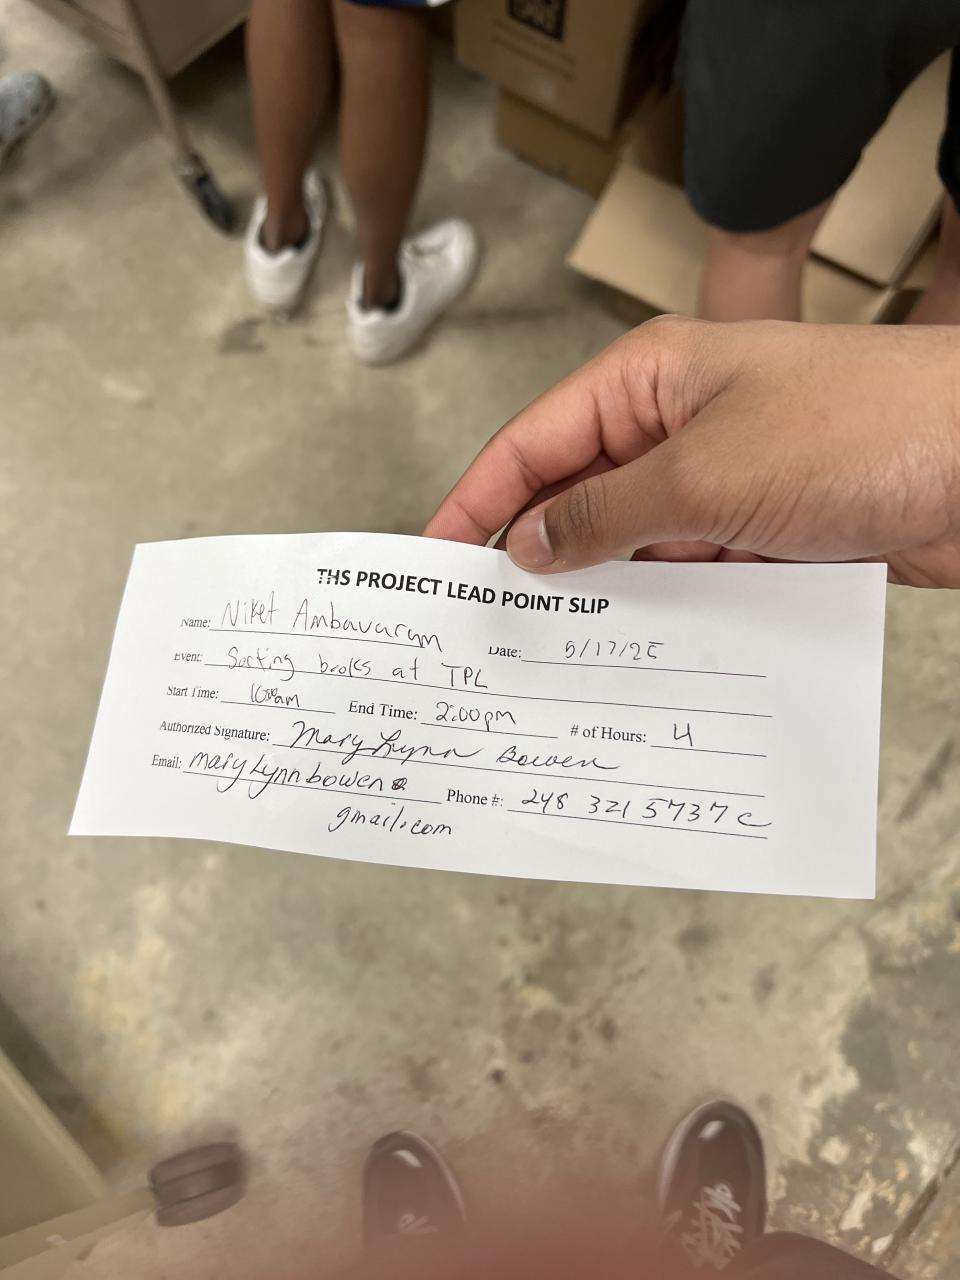 THS PROJECT LEAD POINT SLIP
Name: Niket Ambavaram Date: 5/17/25
Event: Sorting books at TPL
Start Time: 10:00am End Time: 2:00pm # of Hours: 4
Authorized Signature: Mary Lynn Bowen
Email: maryLynnbowen@ Phone #: 248 321 5737 c
gmail.com